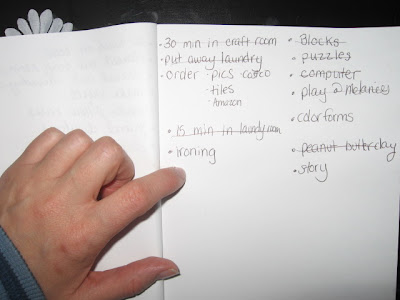 • 30 min in craft room
• Put away laundry
• Order • pics costco
• tiles
• Amazon
• 15 min in laundry room
• ironing
• Blocks
• puzzles
• computer
• play @ Melanies
• colorforms
• peanut butter clay
• story